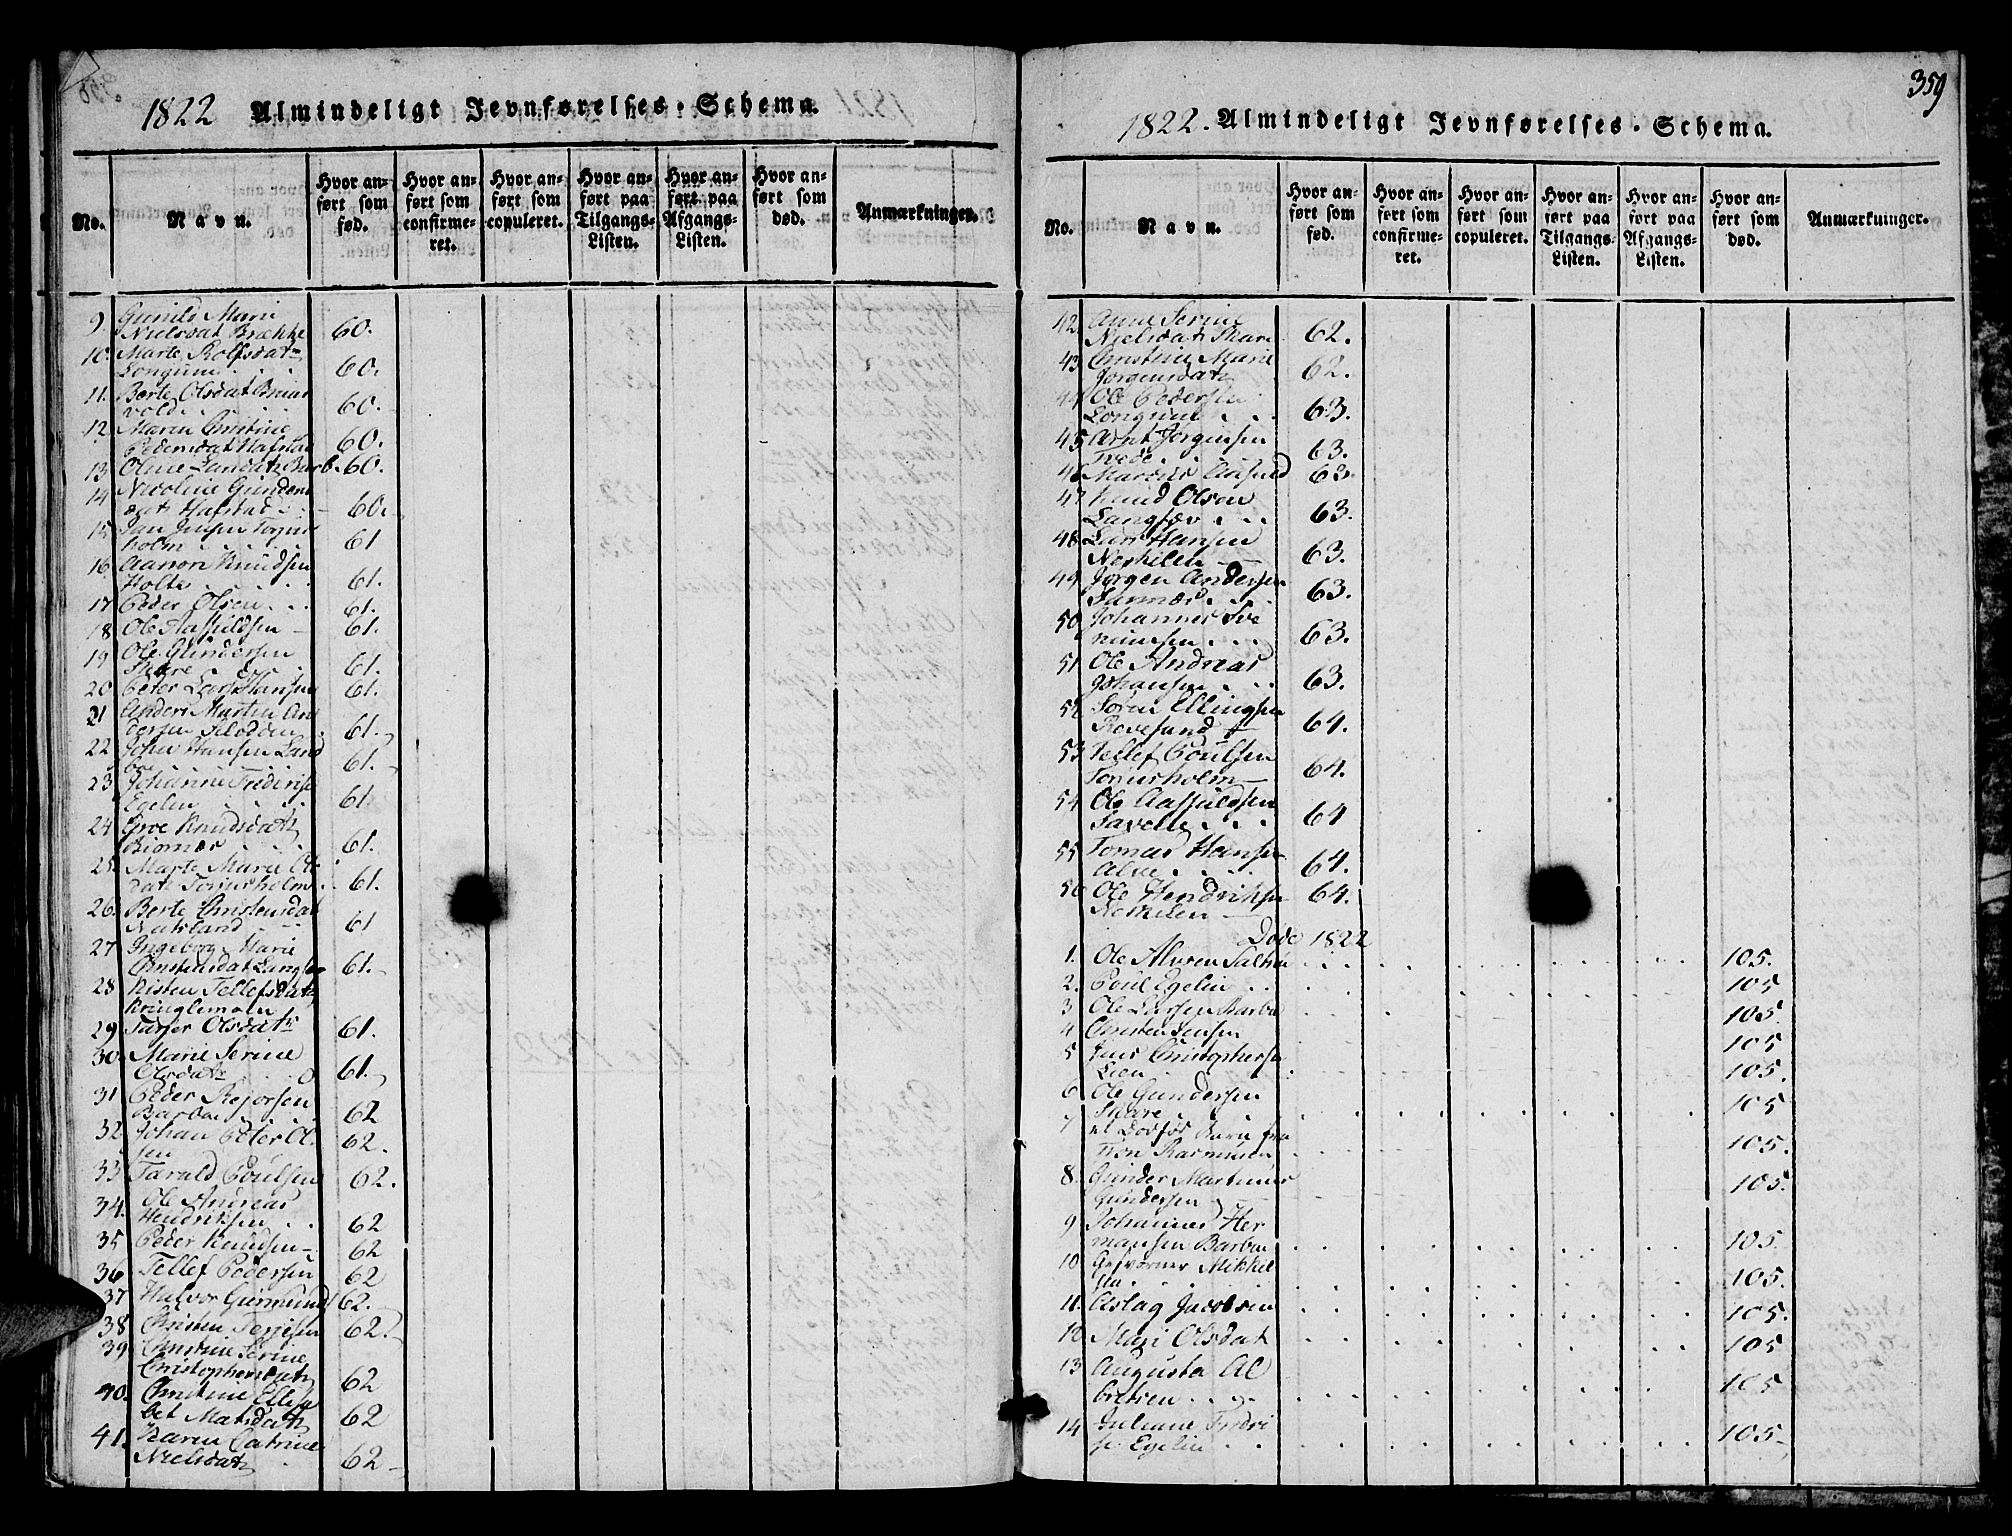 1822 Almindeligt Jevnførelses-Schema.
No.
Navn.
Hvor an-
ført som
fød.
Hvor an-
ført som
confirme-
ret.
Hvor an-
ført som
copuleret.
Hvor an-
ført paa
Tilgangs-
Listen.
Hvor an-
ført paa
Afgangs-
Listen.
Hvor an-
ført som
død.
Anmærkninger.
9. Gunild Marie
Nielsdat Brække 60.
10. Marte Rolfsdatr
Longum . . . 60.
11. Berte Olsdat
vold . . . 60.
12. Maren Christine
Pedersdat Hafstad 60.
13. Oline Larsdatr Barb. 60.
14 Nicoline Gunders
datr Hafstad . . 60.
15. Jan Jensen
holm . . . 61
16. Aanon Knudsen
Holte . . . 61.
17 Peder Olsen . . . 61.
18 Ole Aasildsen 61.
19 Ole Gundersen
Skare . . . 61.
20 Peter Lars Hansen 61.
21 Anders Martin An
dersen . 61.
22 John Hansen Land
boe . . . 61.
23 Johanne Frederikse
Egelin . . . 61
24 Groe Knudsdatr
. . . 61.
25. Marte Marie Ols
datr Torjusholm . 61.
26. Berte Christensdat
Natsland . . 61
27 Ingeborg Marie
Christensdat Langbo 61.
28 Kisten Tellefsdatr
Kringlemoen
29 Tarjer Olsdatr 61.
30. Marie Serine
Olsdatr . . 61.
31 Peder Rejorsen
Barboe . . . 62
32. Johan Peter Ol
sen 62.
33 Tarald Poulsen 62.
34. Ole Andreas
Hendriksen . . 62
35 Peder Knudsen 62
36 Tellef Pedersen 62
37 Halvor Giermunds 62.
38 Christen Terjesen 62.
39. Christine Serine
Christophersdatr 62
40. Christine Elisa
bet Matsdatr 62
41. Karen Catrine
Nielsdatr . 62
359
1822. Almindeligt Jevnførelses-Schema.
No.
Navn.
Hvor an-
ført som
fød.
Hvor an-
ført som
confirme-
ret.
Hvor an-
ført som
copuleret.
Hvor an-
ført paa
Tilgangs-
Listen.
Hvor an-
ført paa
Afgangs-
Listen.
Hvor an-
ført som
død.
Anmærkninger.
42. Anne Serine
Nielsdatr Skare 62.
43 Christine Marie
Jorgensdatr 62.
44 Ole Pedersen
Longum . . . 63.
45 Arnt Jorgensen
Tvede . . . 63.
46 63.
47 Knud Olsen
Langsæv . . . 63.
48 Lars Hansen
Neskilen 63.
49 Jørgen Andersen
. . . 63.
50. Johannes Sve
numsen . . . 63.
51 Ole Andreas
Johansen . . . 63.
52 Søren Ellingsen
Revesund 64.
53 Tellef Poulsen
Torjusholm 64.
54 Ole Aasildsen
Savelii . . . 64
55 Tomas Hansen
Alve . . . 64.
56 Ole Hendriksen
Neskilen 64.
Døde 1822
1. Ole Alvsen . . . 105.
2. Poul Egelin . . 105
3 Ole Larsen Barbo 105
4 Christen Jensen 105
5 Jens Christophersen
Lien . 105.
6 Ole Gundersen
Skare . . . 105
7 et Dødfød Barn fra
Tron Rasmusen 105.
8. Gunder Martinus
Gundersen 105.
9 Johannes Her
mansen Barboe . . . 105.
10 Mikkel
sen . . . 105.
11. Aslag Jacobsen 105.
12 Mari Olsdat 105
13 Augusta Al
bretsen . . . 105
14 Juliane Fredri
se Egelin . . . 105